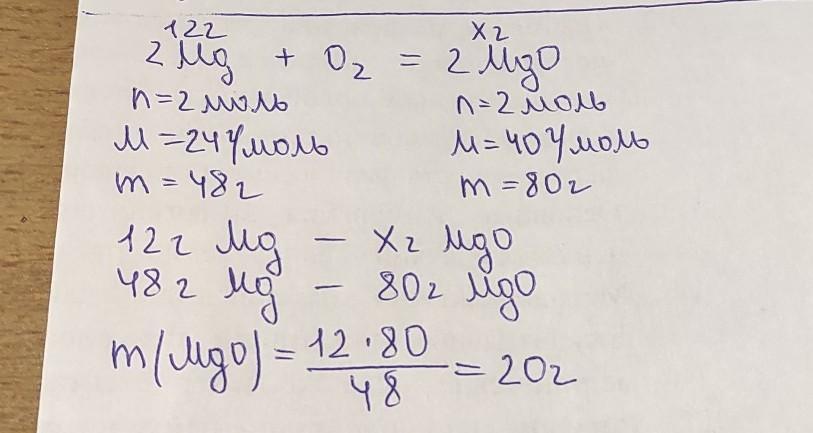 12г x г
2 Mg + O₂ = 2 MgO
n = 2 моль n = 2 моль
M = 24 г/моль M = 40 г/моль
m = 48 г m = 80 г
12 г Mg — x г MgO
48 г Mg — 80 г MgO
m(MgO) = 12 · 80 / 48 = 20 г